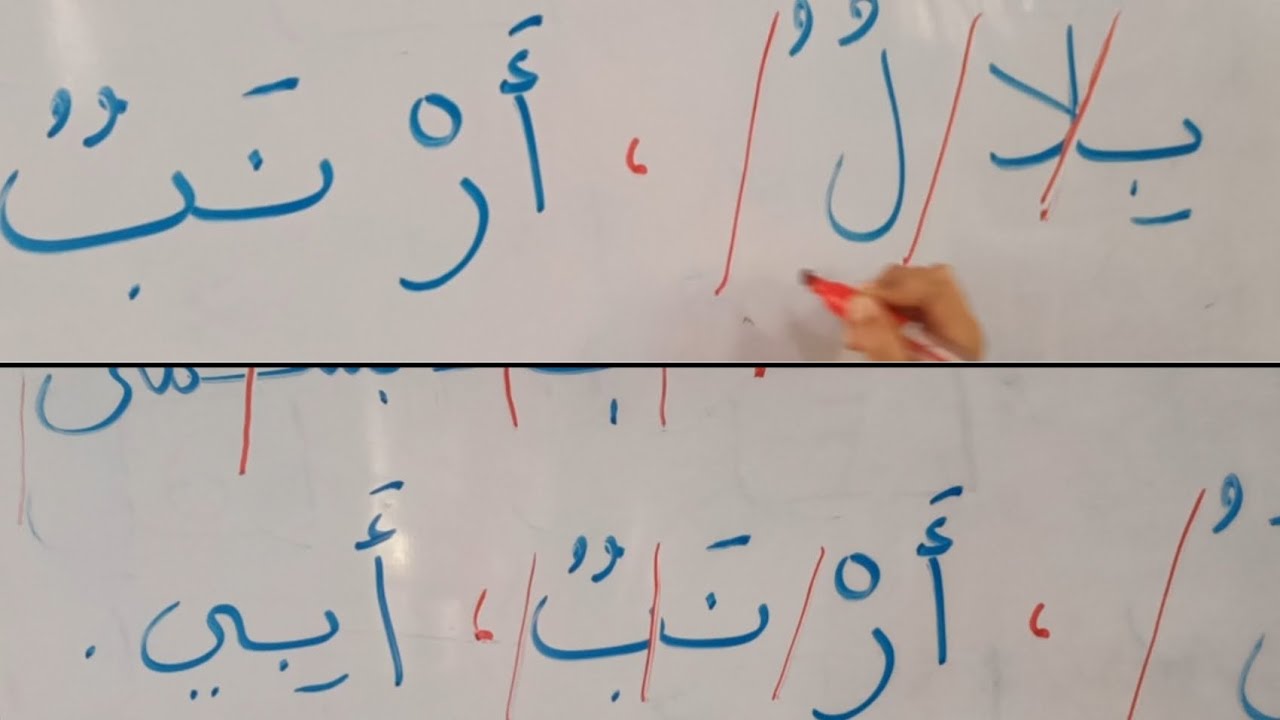 بِلَالٌ ، أَرْنَبٌ
، أَرْنَبٌ ، أَبِي .